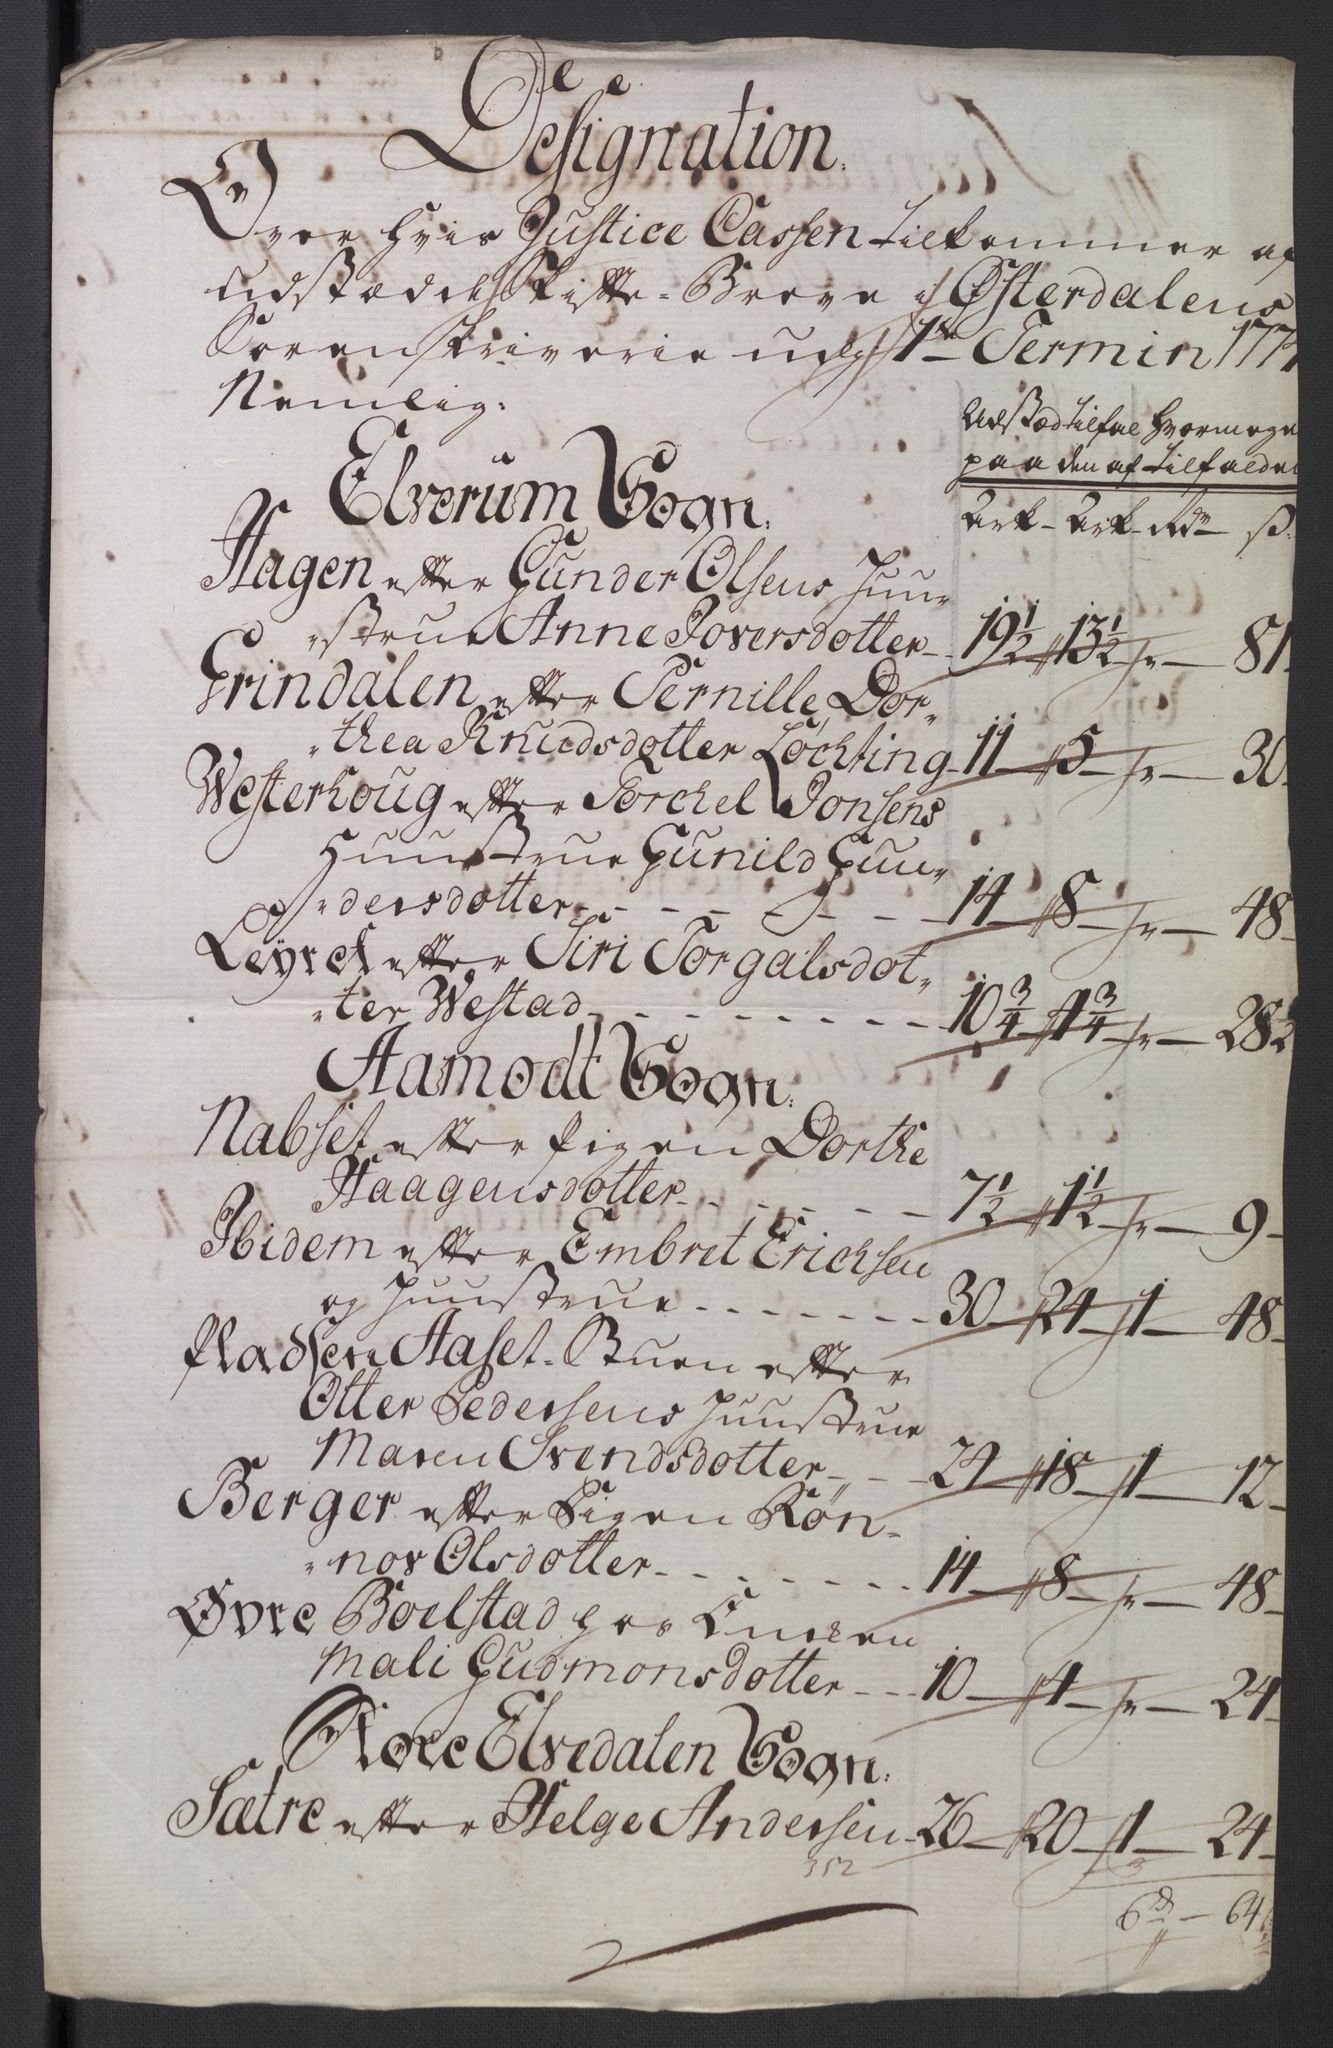 Designation.
Over hvis Justice Cassen tilkommer af
udstædde Skifte-Breve i Østerdalens
Sorenskriverie udj 1te Termin 177
Nemlig:
Udstæd tilfal hvormege
paa den af tilfalde
Ark - Ark - Rdr ß
Elverum Sogn.
Hagen efter Gunder Olsens Huu-
strue Anne Joversdotter - 19 1/2 13 1/2 - 81
Grindalen efter Pernille Dor-
thea Knudsdotter Løchting - 11 5 - 30
Westerhoug efter Torchel Jonsens
Huustrue Gunild Gun-
dersdotter - 14 8 - 48
Leyret efter Siri Torgalsdot-
ter Westad - 10 3/4 4 3/4 - 28 1/2
Aamodt Sogn.
Nabset efter Pigen Dorthe
Haagensdotter - 7 1/2 1 1/2 - 9
Ibidem efter Embret Erichsen
og Huustrue - 30 24 1 48
Pladsen Aaset-Stuen efter
Otter Pedersens Huustrue
Maren Svendsdotter - 24 18 1 12
Berger efter Pigen Røn-
nov Olsdotter - 14 8 - 48
Øvre Bolstad hos Enken
Mali Gudmonsdotter - 10 4 - 24
Store Elvedalen Sogn.
Sætre efter Helge Andersen - 26 20 1 24
352
6 - 64